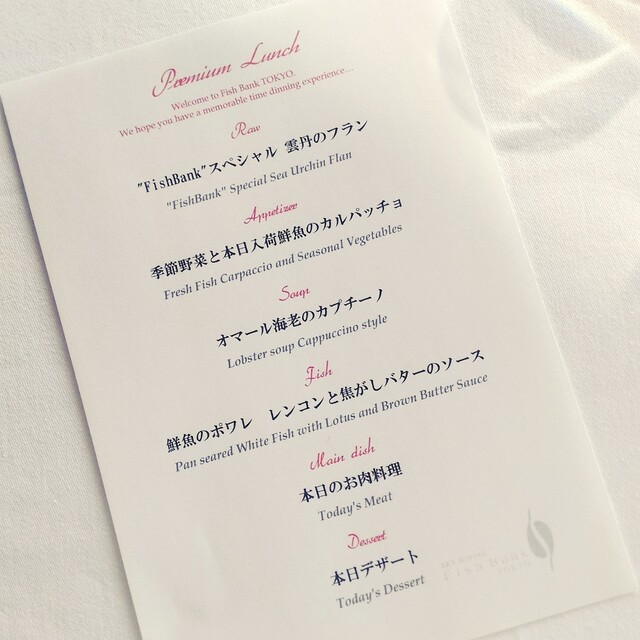 Premium Lunch
Welcome to Fish Bank TOKYO.
We hope you have a memorable time dinning experience...
Raw
"FishBank"スペシャル 雲丹のフラン
"FishBank" Special Sea Urchin Flan
Appetizer
季節野菜と本日入荷鮮魚のカルパッチョ
Fresh Fish Carpaccio and Seasonal Vegetables
Soup
オマール海老のカプチーノ
Lobster soup Cappuccino style
Fish
鮮魚のポワレ　レンコンと焦がしバターのソース
Pan seared White Fish with Lotus and Brown Butter Sauce
Main dish
本日のお肉料理
Today's Meat
Dessert
本日デザート
Today's Dessert
Fish Bank
TOKYO